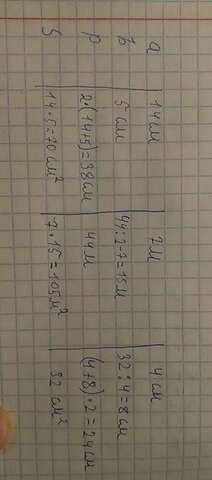 a 14 см 7 м 4 см
b 5 см 44:2-7=15 м 32:4=8 см
P 2·(14+5)=38 см 44 м (4+8)·2=24 см
S 14·5=70 см² 7·15=105 м² 32 см²